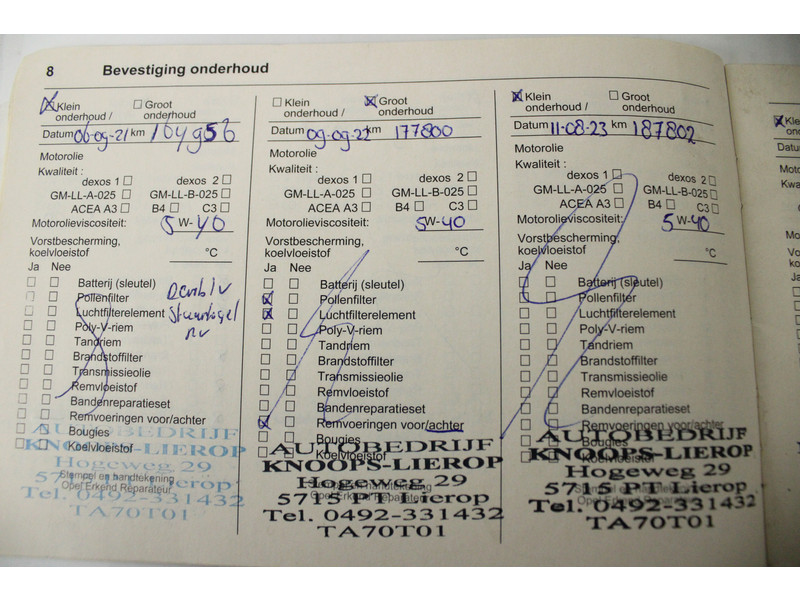 8 Bevestiging onderhoud
Klein onderhoud / Groot onderhoud
Datum 06-09-21 km 164956
Motorolie
Kwaliteit :
dexos 1 dexos 2
GM-LL-A-025 GM-LL-B-025
ACEA A3 B4 C3
Motorolieviscositeit: 5W-40
Vorstbescherming,
koelvloeistof °C
Ja Nee
Batterij (sleutel)
Pollenfilter
Luchtfilterelement
Poly-V-riem
Tandriem
Brandstoffilter
Transmissieolie
Remvloeistof
Bandenreparatieset
Remvoeringen voor/achter
Bougies
Koelvloeistof
AUTOBEDRIJF
KNOOPS-LIEROP
Hogeweg 29
Stempel en handtekening
Opel Erkend Reparateur
Tel. 0492-331432
TA70T01
Klein onderhoud / Groot onderhoud
Datum 09-09-22 km 177800
Motorolie
Kwaliteit :
dexos 1 dexos 2
GM-LL-A-025 GM-LL-B-025
ACEA A3 B4 C3
Motorolieviscositeit: 5W-40
Vorstbescherming,
koelvloeistof °C
Ja Nee
Batterij (sleutel)
Pollenfilter
Luchtfilterelement
Poly-V-riem
Tandriem
Brandstoffilter
Transmissieolie
Remvloeistof
Bandenreparatieset
Remvoeringen voor/achter
Bougies
Koelvloeistof
AUTOBEDRIJF
KNOOPS-LIEROP
Hogeweg 29
5715 PT Lierop
Tel. 0492-331432
TA70T01
Klein onderhoud / Groot onderhoud
Datum 11-08-23 km 187802
Motorolie
Kwaliteit :
dexos 1 dexos 2
GM-LL-A-025 GM-LL-B-025
ACEA A3 B4 C3
Motorolieviscositeit: 5W-40
Vorstbescherming,
koelvloeistof °C
Ja Nee
Batterij (sleutel)
Pollenfilter
Luchtfilterelement
Poly-V-riem
Tandriem
Brandstoffilter
Transmissieolie
Remvloeistof
Bandenreparatieset
Remvoeringen voor/achter
Bougies
Koelvloeistof
AUTOBEDRIJF
KNOOPS-LIEROP
Hogeweg 29
5715 PT Lierop
Tel. 0492-331432
TA70T01